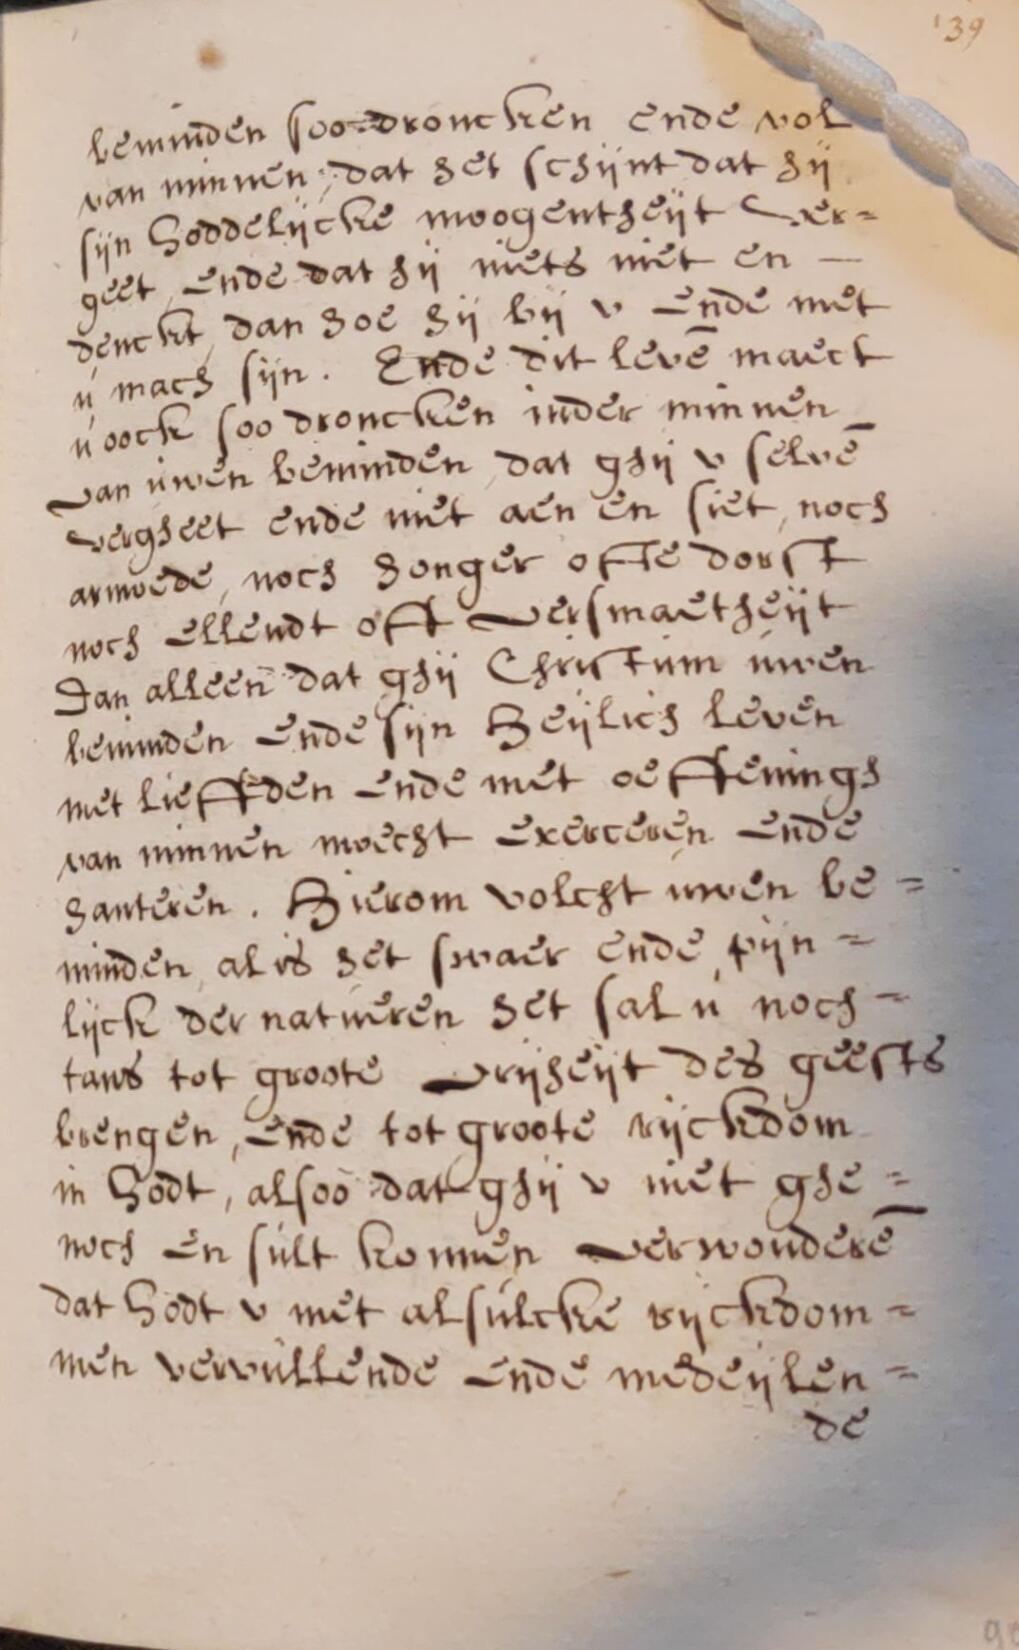 139
beminden soo droncken ende vol
van minnen, dat het schijnt dat hij
sijn Goddelijcke moogentheijt ver=
geet, ende dat hij niets niet en —
denckt, dan hoe hij bij v ende met
ú mach sijn. Ende dit levē maeckt
ú oock soo droncken inder minnen
van úwen beminden, dat ghij v selvē
vergheet ende niet aen en siet, noch
armoede, noch honger ofte dorst
noch ellendt oft versmaetheijt
Dan alleen dat ghij Christum úwen
beminden ende sijn Heijlich leven
met lieffden ende met oeffeningh
van minnen moecht exerceren ende
hanteren. Hierom volcht úwen be=
minden, al is het swaer ende pijn=
lijck der natúeren het sal ú noch=
tans tot groote vrijheijt des geests
brengen, ende tot groote rijckdom
in Godt, alsoo dat ghij v niet ghe=
noch en súlt konnen verwonderē
dat Godt v met alsúlcke rijckdom=
men vervúllende ende medeijlen=
de